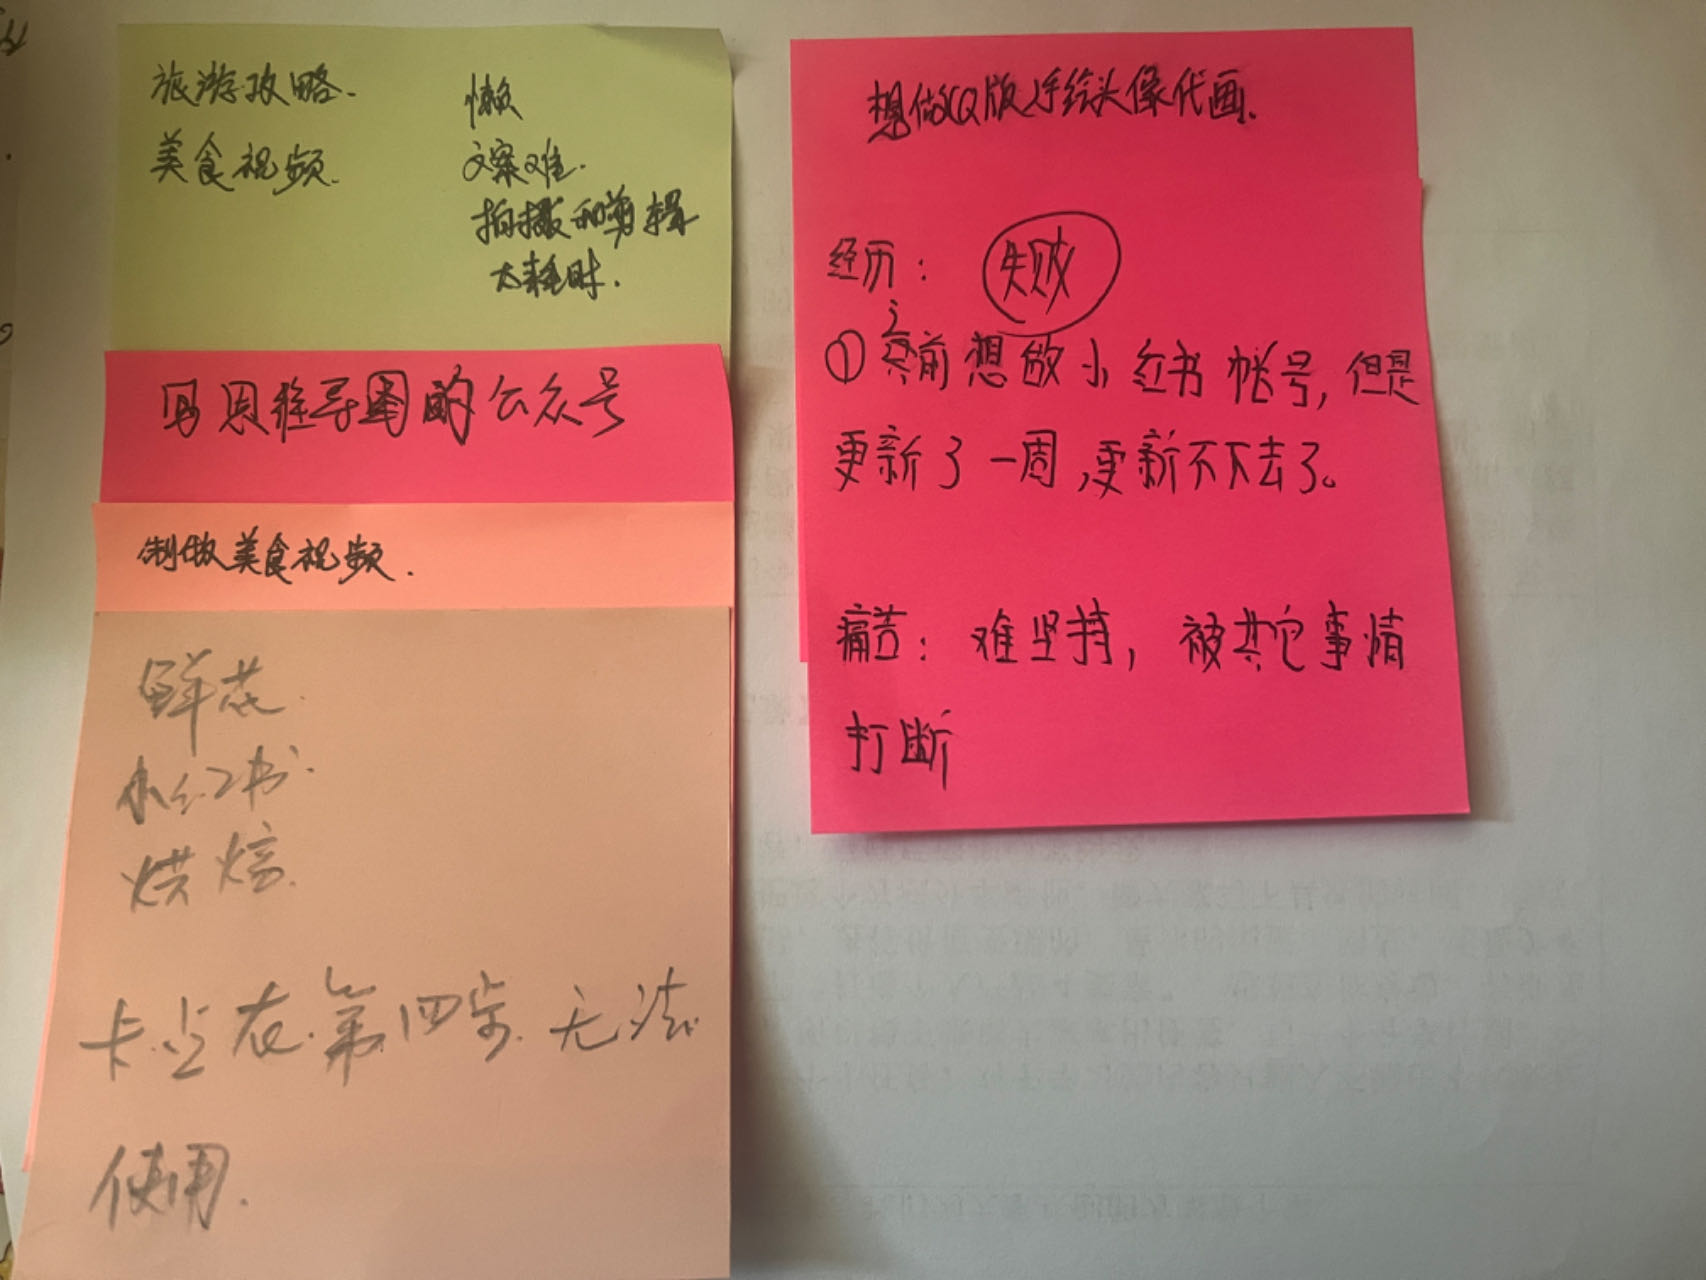 旅游攻略.
美食视频.
懒
文案难.
拍摄和剪辑
太耗时.
写思维导图的公众号
制做美食视频.
鲜花.
小红书.
烘焙.
卡点在.第四步.无法
使用.
想做Q版手绘头像代画.
经历: 失败
①之前想做小红书帐号,但是
更新了一周,更新不下去了。
痛苦: 难坚持, 被其它事情
打断